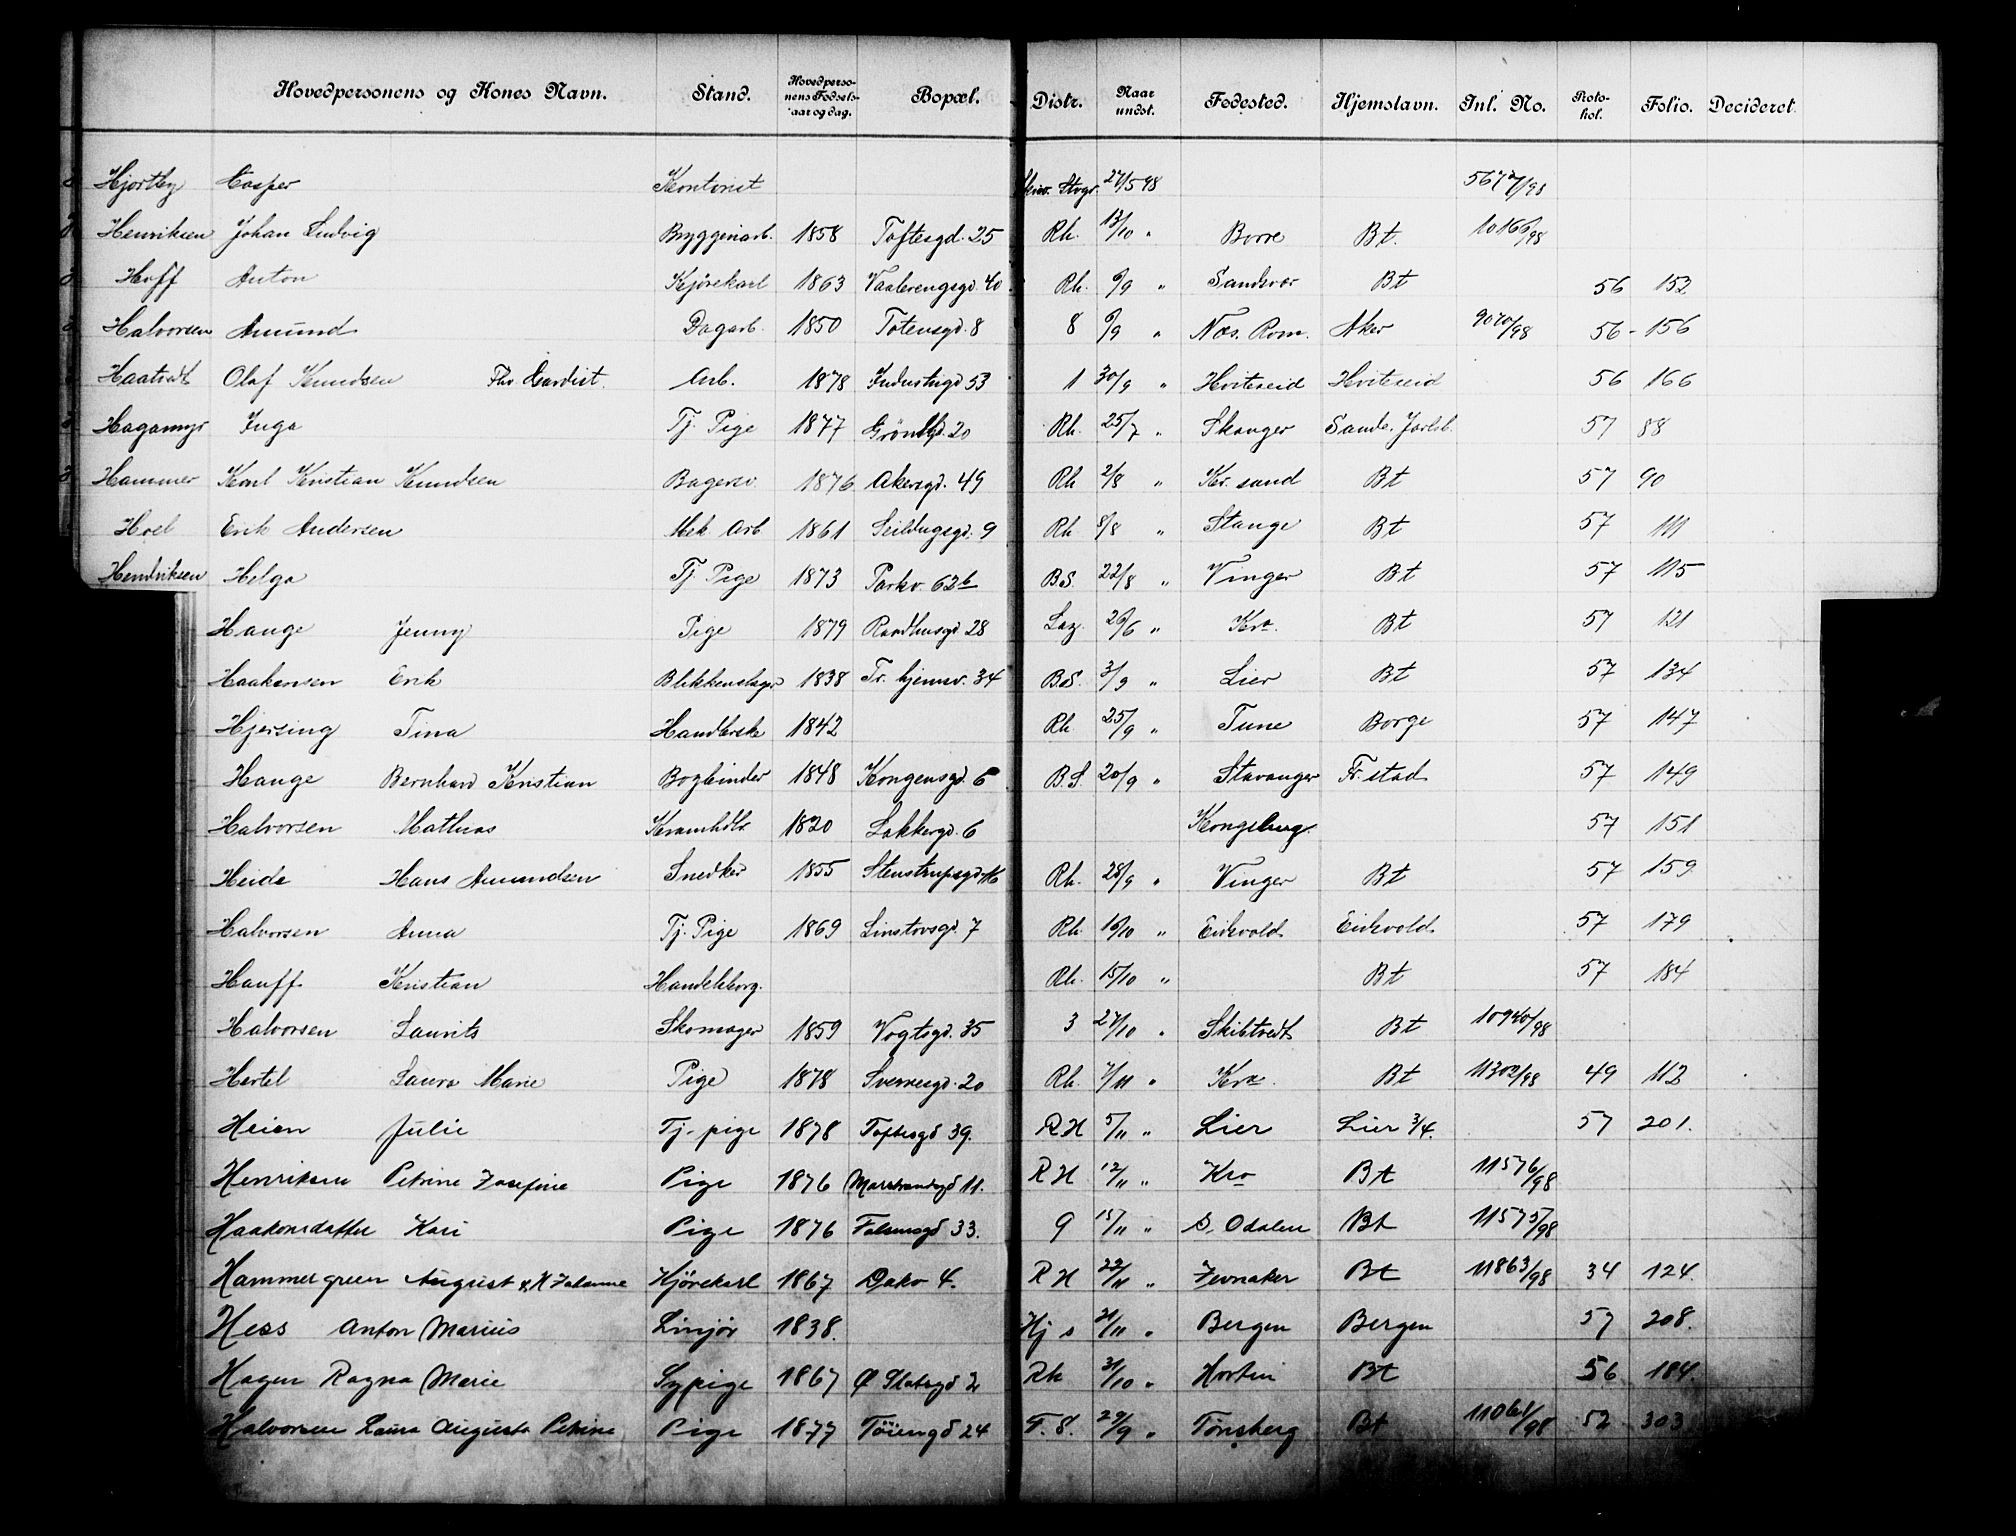 Hovedpersonens og Kones Navn. Stand. Hovedpersonens Fødselsaar og dag. Bopæl. Distr. Naar undst. Fødested. Hjemstavn. Inl. No. Protokol. Folio. Decideret.
Hjortby Casper Kontorist 27/5 98 5677/98
Henriksen Johan Ludvig Bryggeriarb. 1858 Toftesgd. 25 Rh. 13/10 " Borre Bt. 10166/98
Hoff Anton Kjørekarl 1863 Vaalerengsgd. 40 Rh. 6/9 " Sandsvær Bt 56 152
Halvorsen Amund Dagarb. 1850 Totensgd. 8 8 6/9 " Næs. Rom. Aker 9070/98 56 - 156
Haatvedt Olaf Knudsen Fhv. Gardist. Arb. 1878 Industrigd 53 1 30/9 " Hviteseid Hviteseid 56 166
Hagamyr Inga Tj. Pige 1877 Grønlbgd. 20 Rh. 25/7 " Skauger Sande. Jarlsb. 57 88
Hammer Karl Kristian Knudsen Bagersv. 1876 Akersgd. 49 Rh 2/8 " Kr. sand Bt 57 90
Hoel Erik Andersen Mek Arb 1861 Seildugsgd. 9 Rh 8/8 " Stange Bt 57 111
Hendriksen Helga Tj. Pige 1873 Parkv. 62b B.S. 22/8 " Vinger Bt 57 115
Hauge Jenny Pige 1879 Raadhusgd 28 Laz. 26/6 " Kra. Bt 57 121
Haakensen Erik Blikkenslager 1838 Fr. hjemsv. 34 B.S. 3/9 " Lier Bt 57 134
Hjersing Tina Handlerske 1842 Rh 25/9 " Tune Borge 57 147
Hauge Bernhard Kristian Bogbinder 1848 Kongensgd. 6 B.S. 20/9 " Stavanger Fr. stad 57 149
Halvorsen Mathias Kramhdlr 1820 Lakkergd. 6 Kongsberg. 57 151
Heide Hans Amundsen Snedker 1855 Stenstrupsgd. 16 Rh. 28/9 " Vinger Bt 57 159
Halvorsen Anna Tj. Pige 1869 Linstovsgd. 7 Rh. 10/10 " Eidsvold Eidsvold 57 179
Hauff Kristian Handelsborg. Rh. 15/10 " Bt 57 184
Halvorsen Laurits Skomager 1859 Vogtsgd. 35 3 27/10 " Skibtvedt Bt 10940/98
Hertel Laura Marie Pige 1878 Sverresgd. 20 Rh. 7/11 " Kra. Bt 11302/98 49 112
Heien Julie Tj. pige 1878 Toftesgd 39. RH 5/11 " Lier Lier 3/4. 57 201.
Henriksen Petrine Josefine Pige 1876 Marstrandsgd 11. RH 12/11 " Kra Bt 11576/98
Haakonsdatter Kari Pige 1876 Falsensgd 33. 9 15/11 " S. Odalen Bt 11575/98
Hammergreen August & H Johanne Kjørekarl 1867 Dakv 4. RH 22/11 " Jevnaker Bt 11863/98 34 124.
Hess Anton Marius Linjör 1838. Hj s 21/11 " Bergen Bergen 57 208.
Hagen Ragna Marie Sypige 1867 Ø Slotsgd 2 Rh 31/10 " Horten Bt 56 184.
Halvorsen Laura Augusta Petrine Pige 1877 Töiengd 24 F.S. 29/9 " Tønsberg Bt 11061/98 52 303